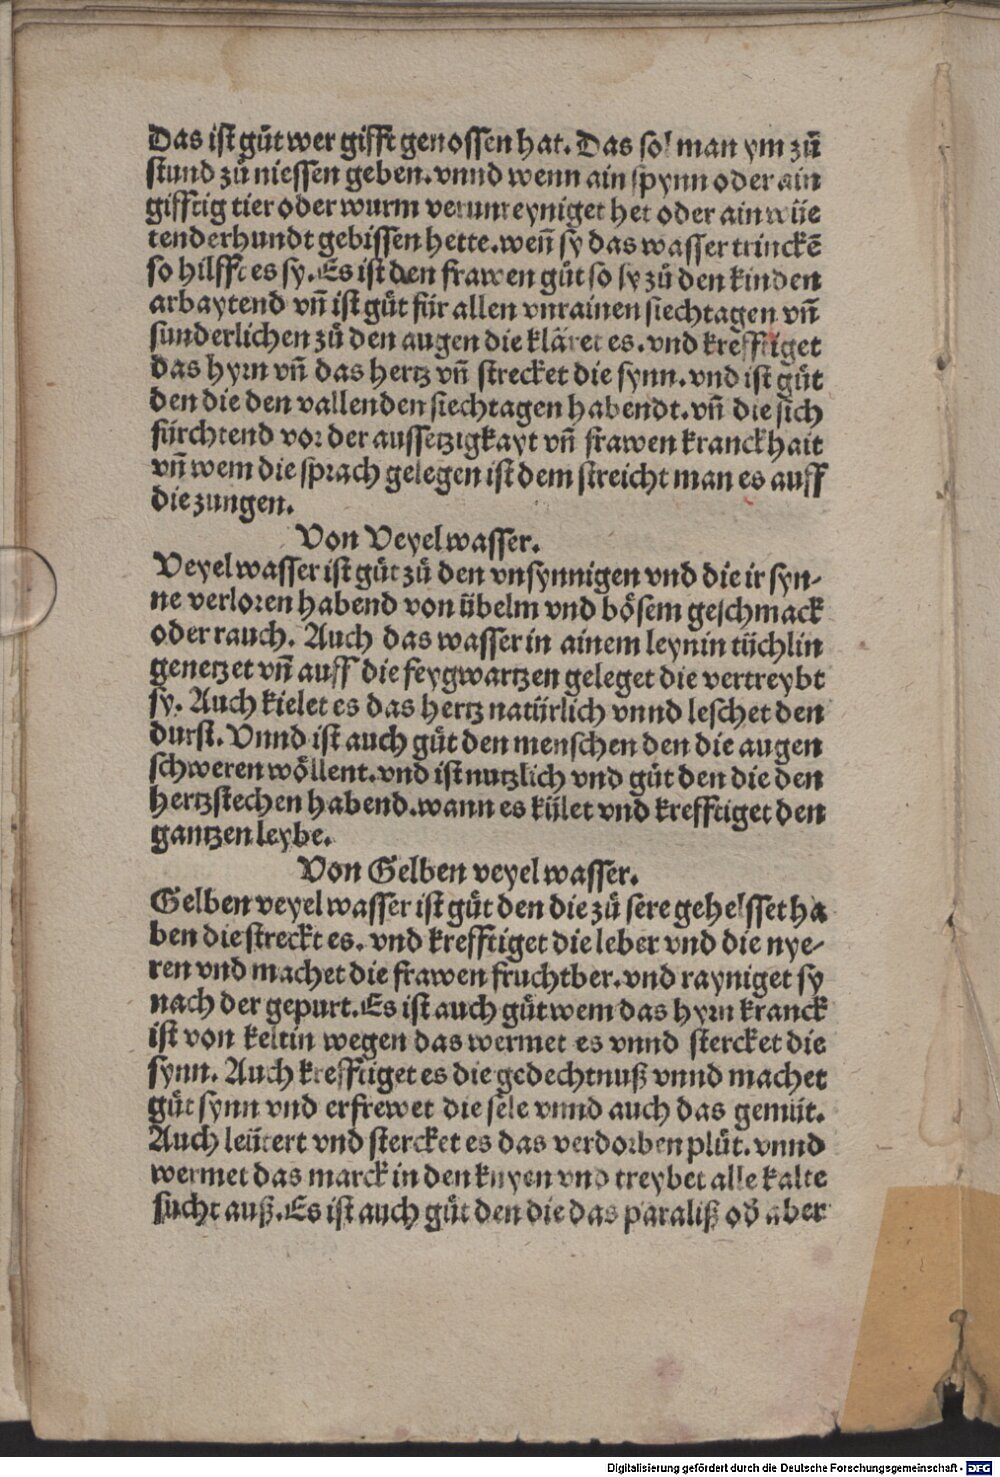 Das ist gůt wer gifft genossen hat. Das sol man ym zů
stund zů niessen geben. vnnd wenn ain spynn oder ain
gifftig tier oder wurm verunreyniget het oder ain wüe
tender hundt gebissen hette. weñ sy das wasser trinckē
so hilfft es sy. Es ist den frawen gůt so sy zů den kinden
arbaytend vñ ist gůt für allen vnrainen siechtagen vñ
sunderlichen zů den augen die kläret es. vnd krefftiget
das hyrn vñ das hertz vñ strecket die synn. vnd ist gůt
den die den vallenden siechtagen habendt. vñ die sich
fürchtend vor der aussetzigkayt vñ frawen kranckhait
vñ wem die sprach gelegen ist dem streicht man es auff
die zungen.
Von Veyel wasser.
Veyel wasser ist gůt zů den vnsynnigen vnd die ir syn-
ne verloren habend von übelm vnd bösem geschmack
oder rauch. Auch das wasser in ainem leynin tüchlin
genetzet vñ auff die feygwartzen geleget die vertreybt
sy. Auch kielet es das hertz natürlich vnnd leschet den
durst. Vnnd ist auch gůt den menschen den die augen
schweren wöllent. vnd ist nutzlich vnd gůt den die den
hertzstechen habend. wann es kület vnd krefftiget den
gantzen leybe.
Von Gelben veyel wasser.
Gelben veyel wasser ist gůt den die zů sere gehelsset ha
ben die streckt es. vnd krefftiget die leber vnd die nye-
ren vnd machet die frawen fruchtber. vnd rayniget sy
nach der gepurt. Es ist auch gůt wem das hyrn kranck
ist von keltin wegen das wermet es vnnd stercket die
synn. Auch krefftiget es die gedechtnuß vnnd machet
gůt synn vnd erfrewet die sele vnnd auch das gemüt.
Auch leütert vnd stercket es das verdorben plůt. vnnd
wermet das marck in den knyen vnd treybet alle kalte
sucht auß. Es ist auch gůt den die das paraliß od̄ aber
Digitalisierung gefördert durch die Deutsche Forschungsgemeinschaft - DFG